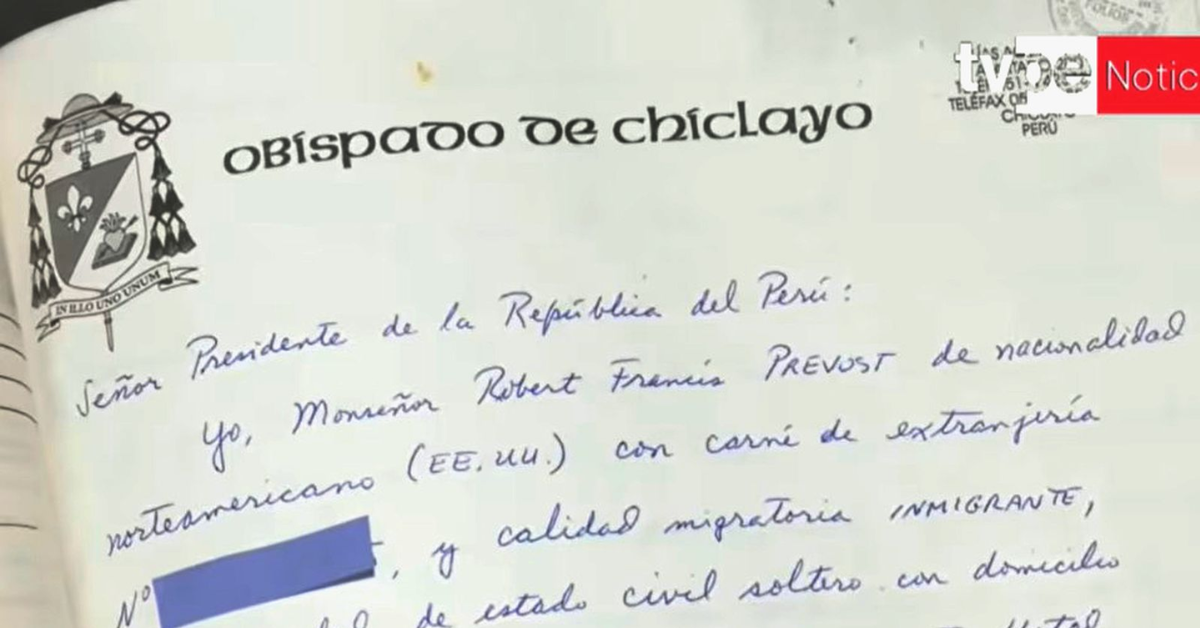 OBISPADO DE CHICLAYO
TELEFAX
PERÚ
tvpe Notic
IN ILLO UNO UNUM
Señor Presidente de la República del Perú:
Yo, Monseñor Robert Francis PREVOST de nacionalidad
norteamericano (EE.UU.) con carné de extranjería
Nº , y calidad migratoria INMIGRANTE,
de estado civil soltero con domicilio